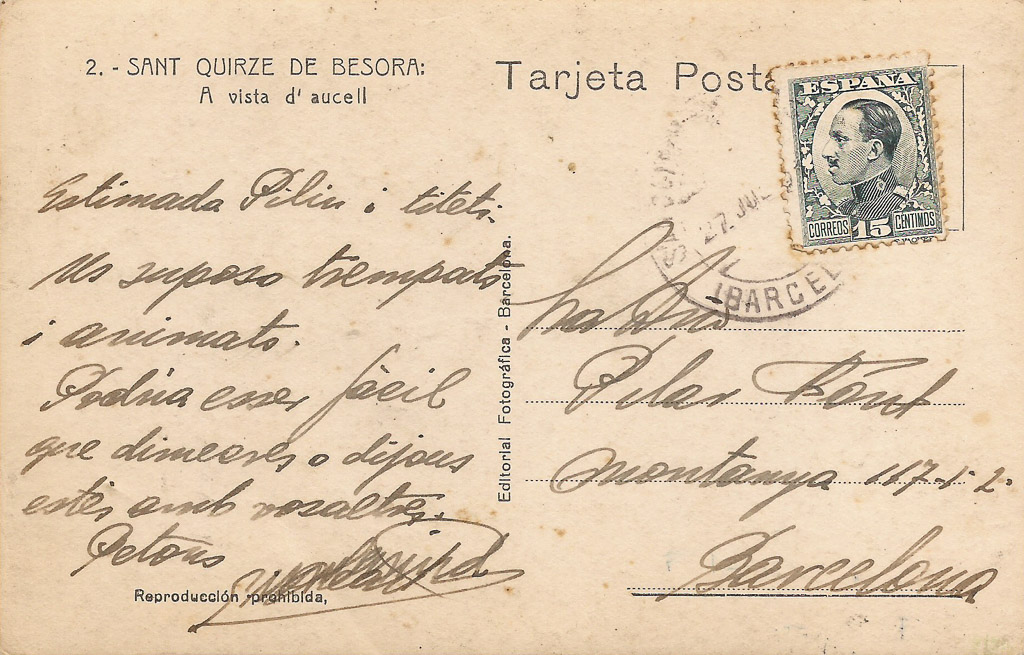 2. - SANT QUIRZE DE BESORA:
A vista d' aucell
Tarjeta Posta
ESPAÑA
CORREOS 15 CENTIMOS
27 JUL
(BARCEL
Estimada Pilin i titeti.
Us suposo trempats
i animats.
Podria esser fàcil
que dimecres o dijous
estés amb vosaltres.
Petons
Reproducción prohibida,
Editorial Fotográfica - Barcelona.
Pilar Fónt
Montanya 117-1-2.
Barcelona